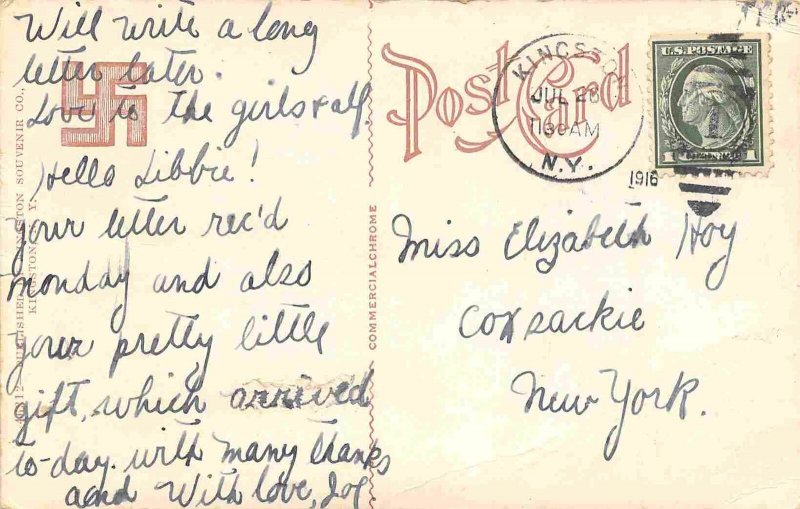 Will write a long
letter later.
Love to the girls & all.
Hello Libbie!
Your letter rec'd
monday and also
your pretty little
gift, which arrived
to-day. with many thanks
and With love,
PUBLISHED KINGSTON SOUVENIR CO.,
KINGSTON, N. Y.
COMMERCIALCHROME
Post Card
KINGSTON
JUL 26
1130AM
N.Y.
1916
U.S. POSTAGE
1 1
Miss Elizabeth Hoy
Coxsackie
New York.